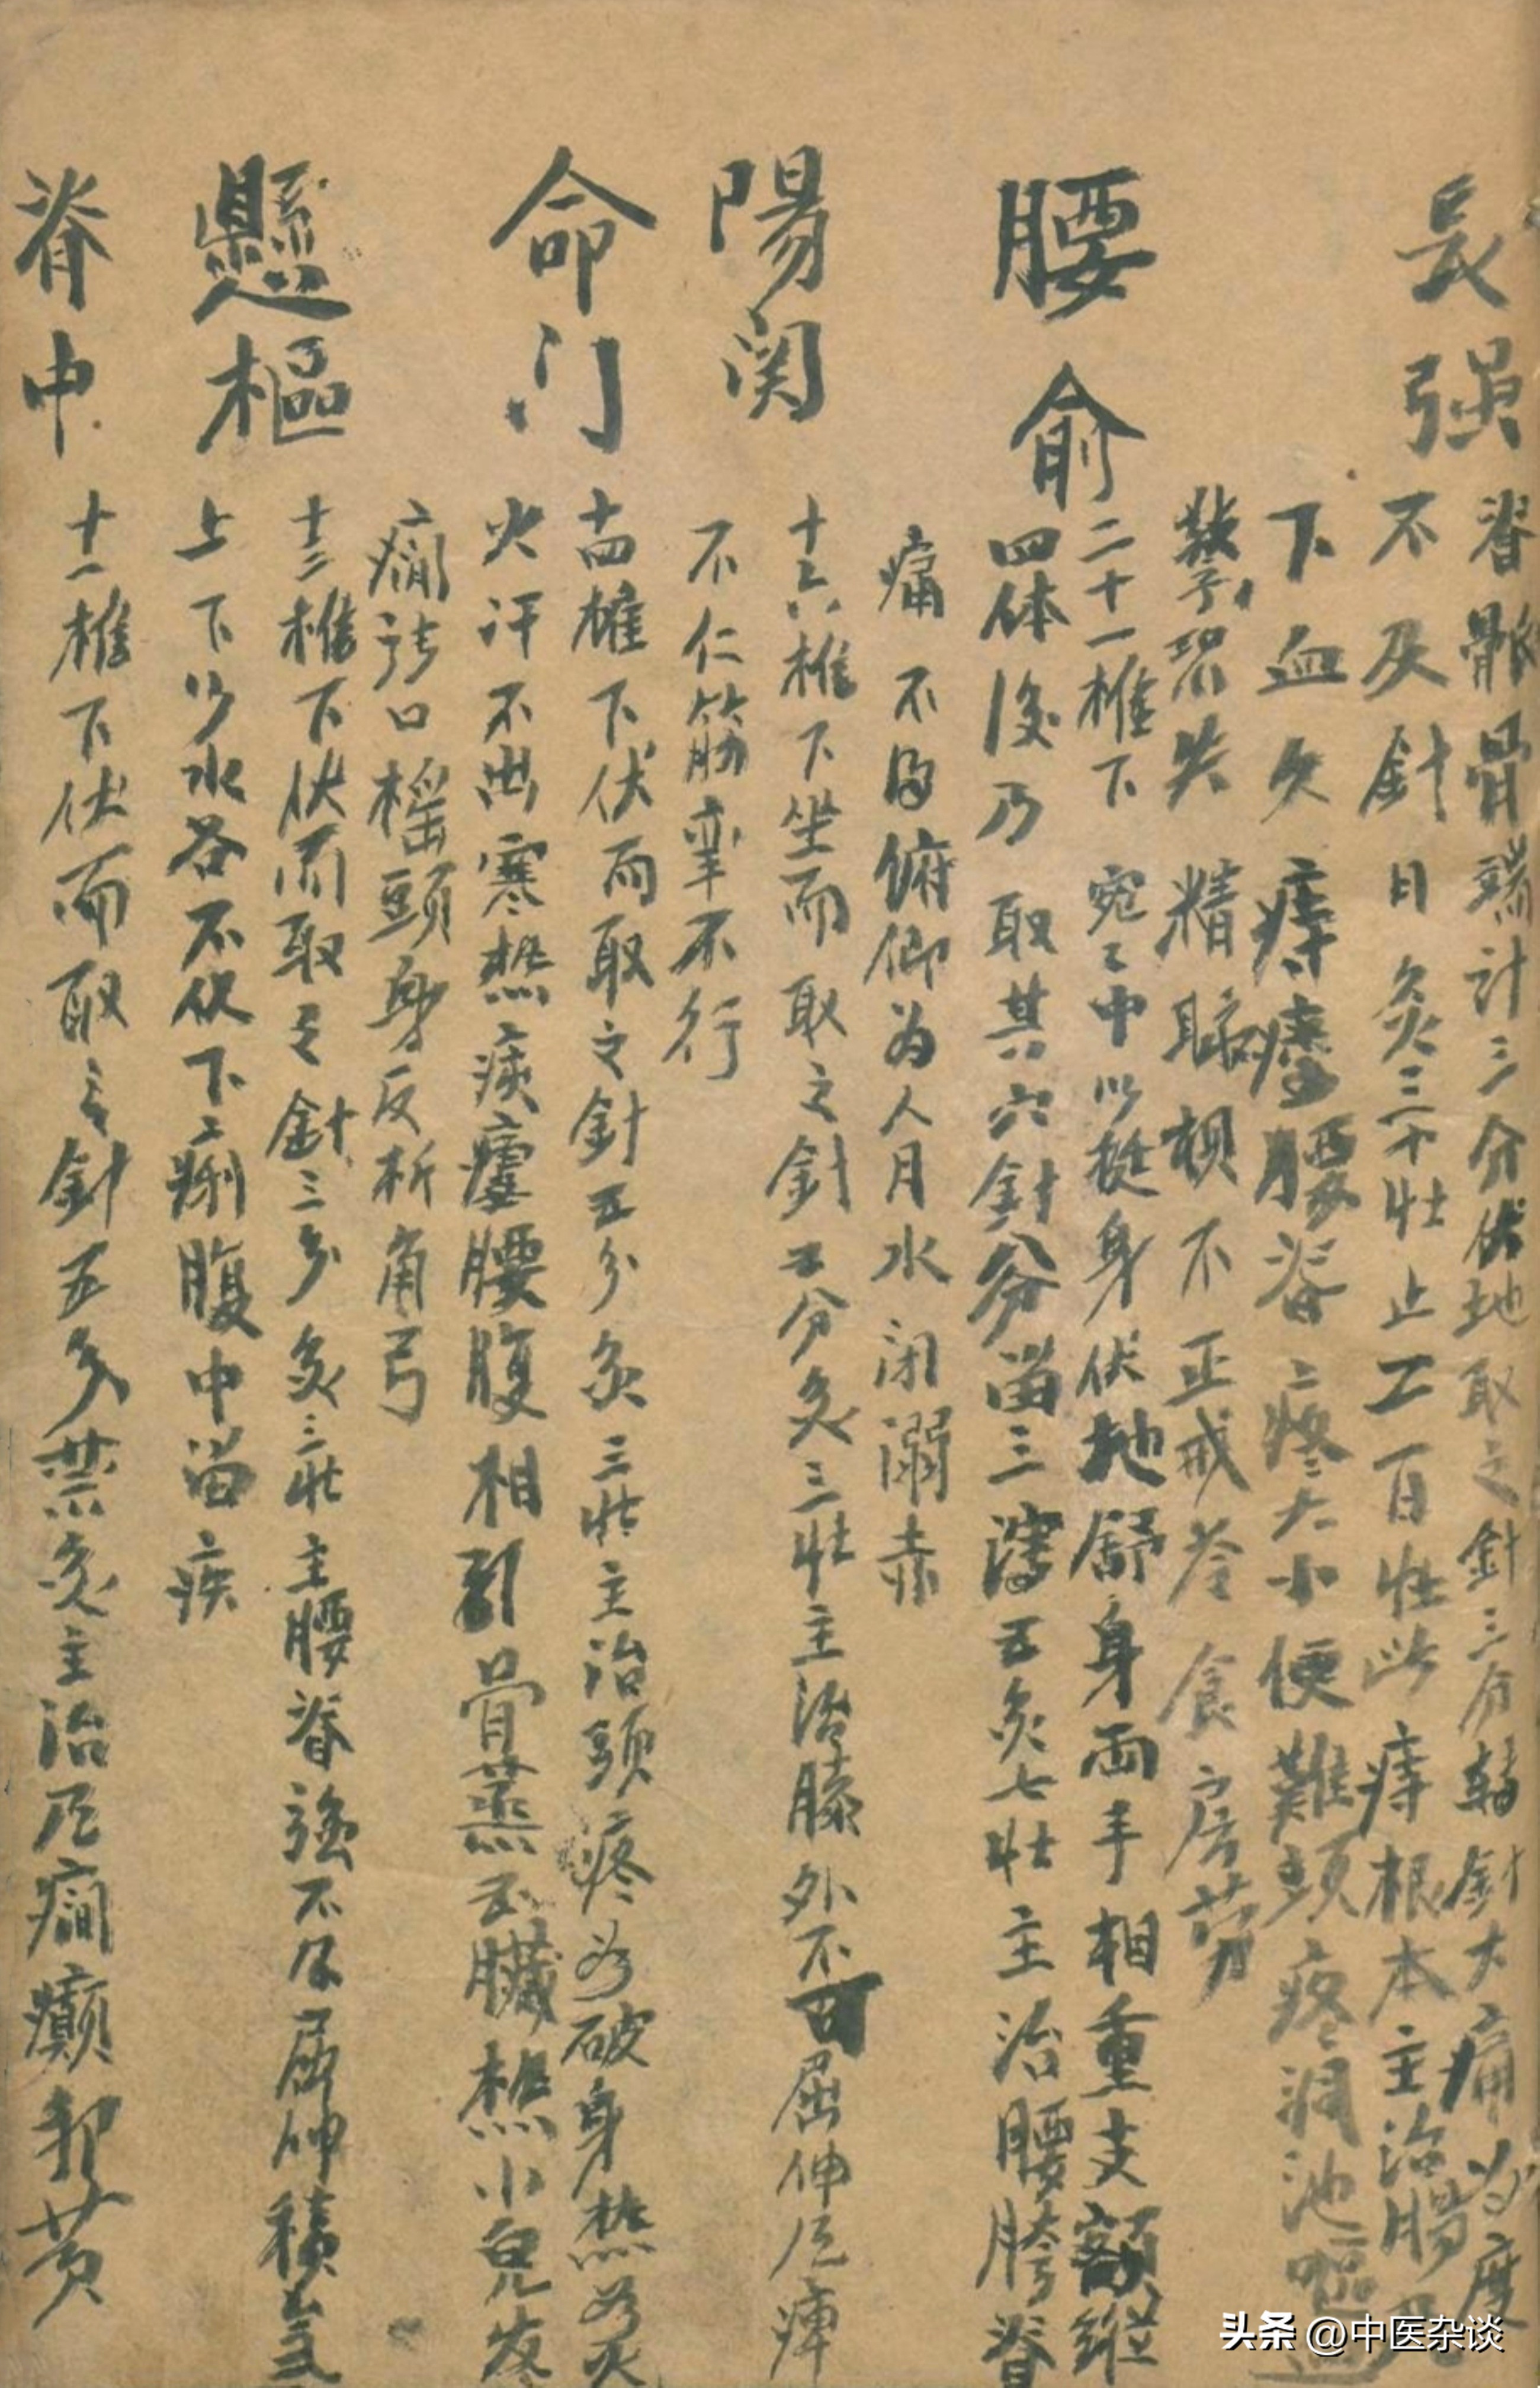 長强
脊骶骨端計三分伏地取之針三分轉針大痛为度
不及針日灸三十壮止二百壮此痔根本主治腸风
下血久痔瘻腰脊疼大小便難頭疼洞泄
驚恐失精不正戒冷食房劳
腰俞
二十一椎下宛々中以挺身伏地舒身両手相重支額縱
四体後乃取其穴針八分留三瀉五灸七壮主治腰胯脊
痛不得俯仰为人月水闭溺赤
陽関
十六椎下坐而取之針五分灸三壮主治膝外不可屈伸痺
不仁筋挛不行
命门
十四椎下伏而取之針五分灸三壮主治頭疼如破身热如火
火汗不出寒热痎瘧腰腹相引骨蒸五臓热小兒发
癇口摇頭身反折角弓
懸樞
十三椎下伏而取之針三分灸三壮主腰脊强不得屈伸積氣
上下水谷不化下利腹中留疾
脊中
十一椎下伏而取之針五分禁灸主治风癇癲邪黄
头条 @中医杂谈